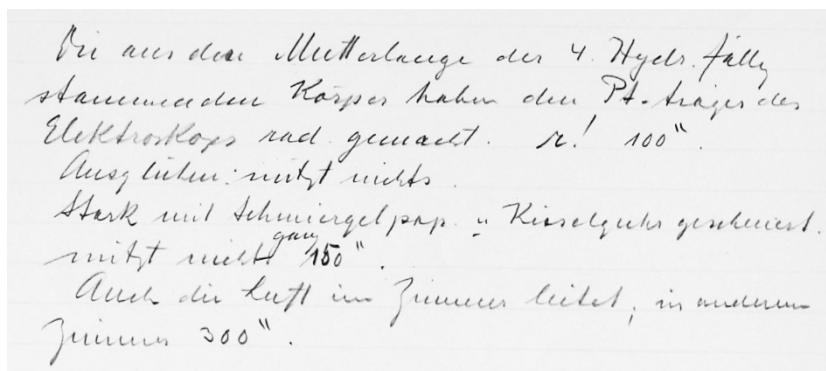 Die aus den Mutterlauge der 4. Hydr. fällg
stammenden Körper haben den Pt-träger des
Elektroskops rad. gemacht. r! 100".
Ausglühen: nützt nichts.
Stark mit Schmirgelpap. u Kieselguhr gescheuert.
nützt nicht ganz 150".
Auch die Luft im Zimmer leitet, in anderem
Zimmer 300".